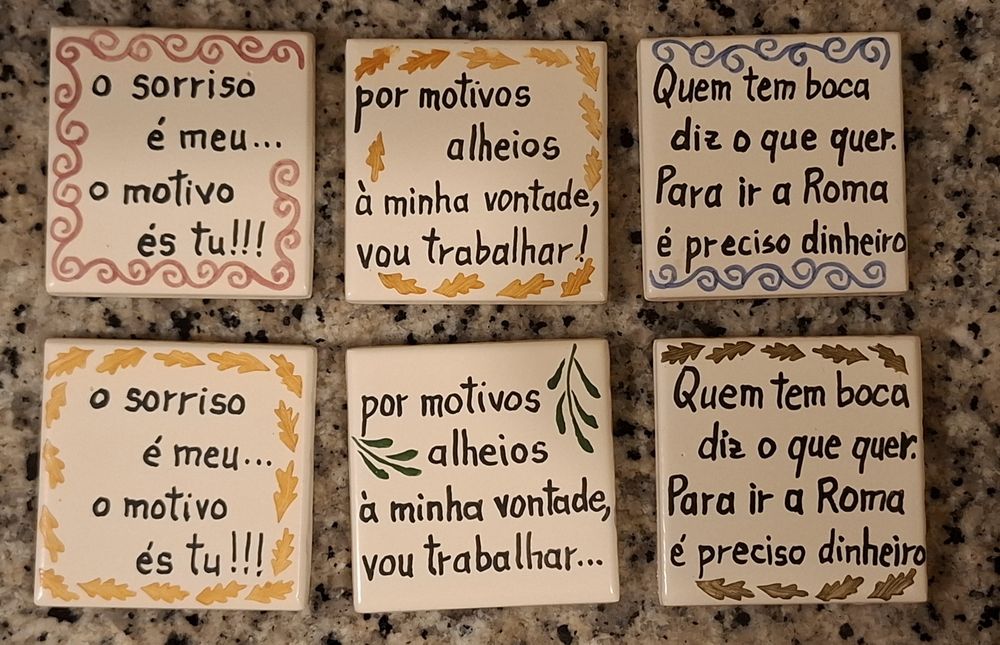 o sorriso
é meu...
o motivo
és tu!!!
por motivos
alheios
à minha vontade,
vou trabalhar!
Quem tem boca
diz o que quer.
Para ir a Roma
é preciso dinheiro
o sorriso
é meu...
o motivo
és tu!!!
por motivos
alheios
à minha vontade,
vou trabalhar...
Quem tem boca
diz o que quer.
Para ir a Roma
é preciso dinheiro